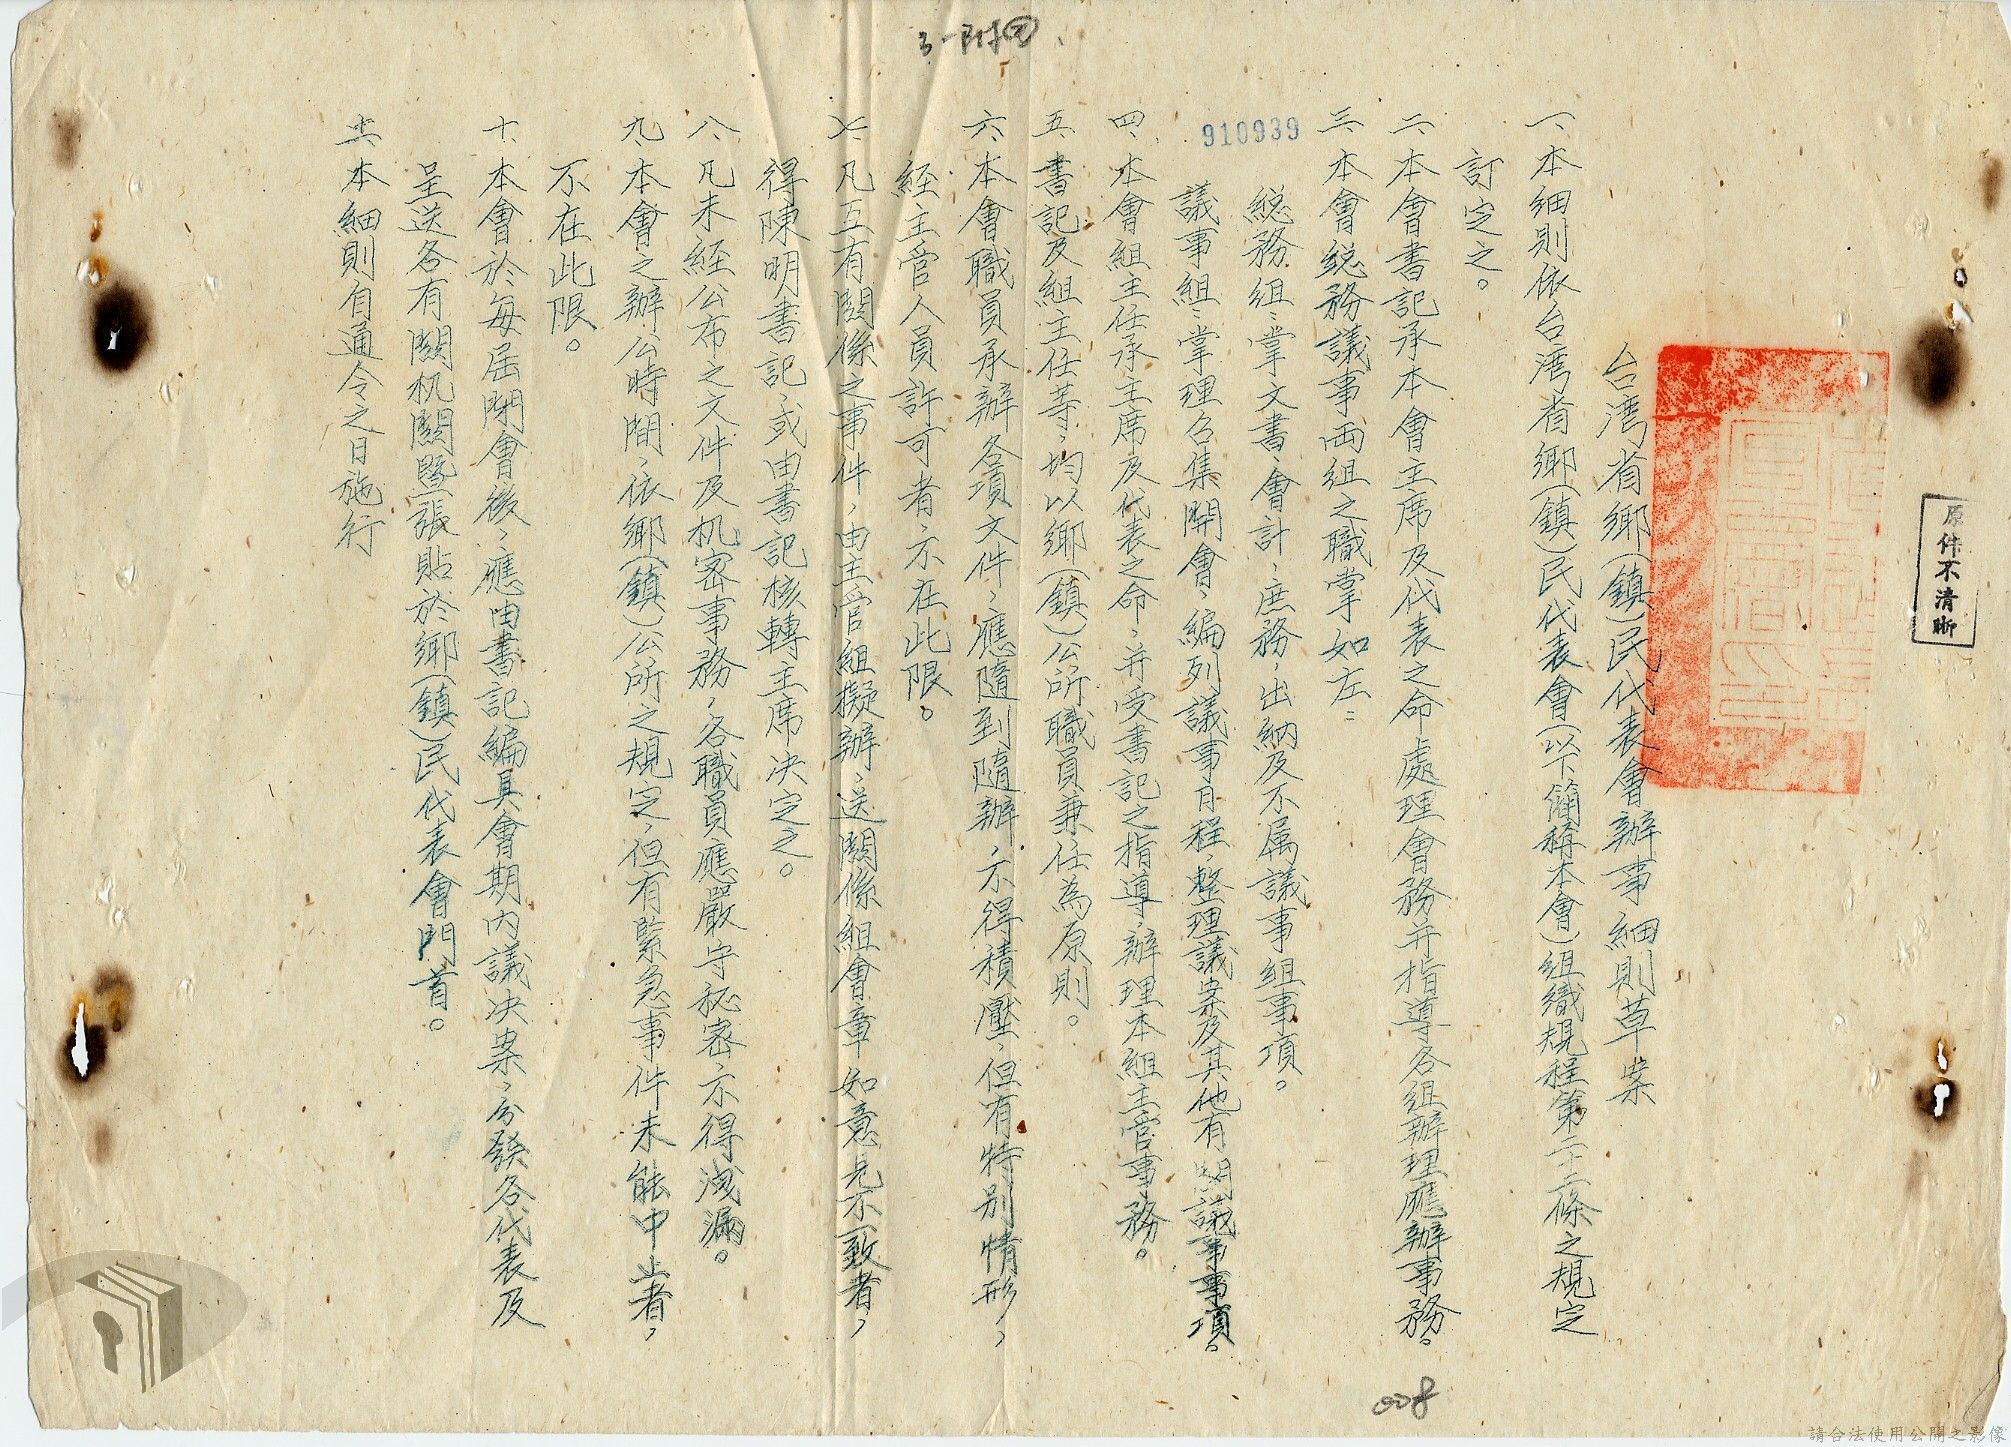 3-附㊃
910939
原件不清晰
台湾省鄉(鎮)民代表會辦事細則草案
一、本細則依台湾省鄉(鎮)民代表會(以下簡稱本會)組織規程第二十二條之規定
訂定之。
二、本會書記承本會主席及代表之命處理會務并指導各組辦理應辦事務。
三、本會総務議事両組之職掌如左：
総務組：掌文書、會計、庶務、出納及不属議事組事項。
議事組：掌理召集開會、編列議事日程、整理議案及其他有關議事事項。
四、本會組主任承主席及代表之命、并受書記之指導、辦理本組主管事務。
五、書記及組主任等、均以鄉(鎮)公所職員兼任為原則。
六、本會職員承辦各項文件、應隨到隨辦、不得積壓、但有特别情形、
経主管人員許可者、不在此限。
七、凡互有關係之事件、由主管組擬辦、送關係組會章如意見不一致者、
得陳明書記、或由書記核轉主席决定之。
八、凡未経公布之文件及机密事務、各職員應嚴守秘密、不得洩漏。
九、本會之辦公時間、依鄉(鎮)公所之規定、但有緊急事件未能中止者、
不在此限。
十、本會於每屆閉會後、應由書記編具會期内議决案、分發各代表及
呈送各有關机關暨張貼於鄉(鎮)民代表會門首。
十一、本細則自通令之日施行
008
請合法使用公開之影像